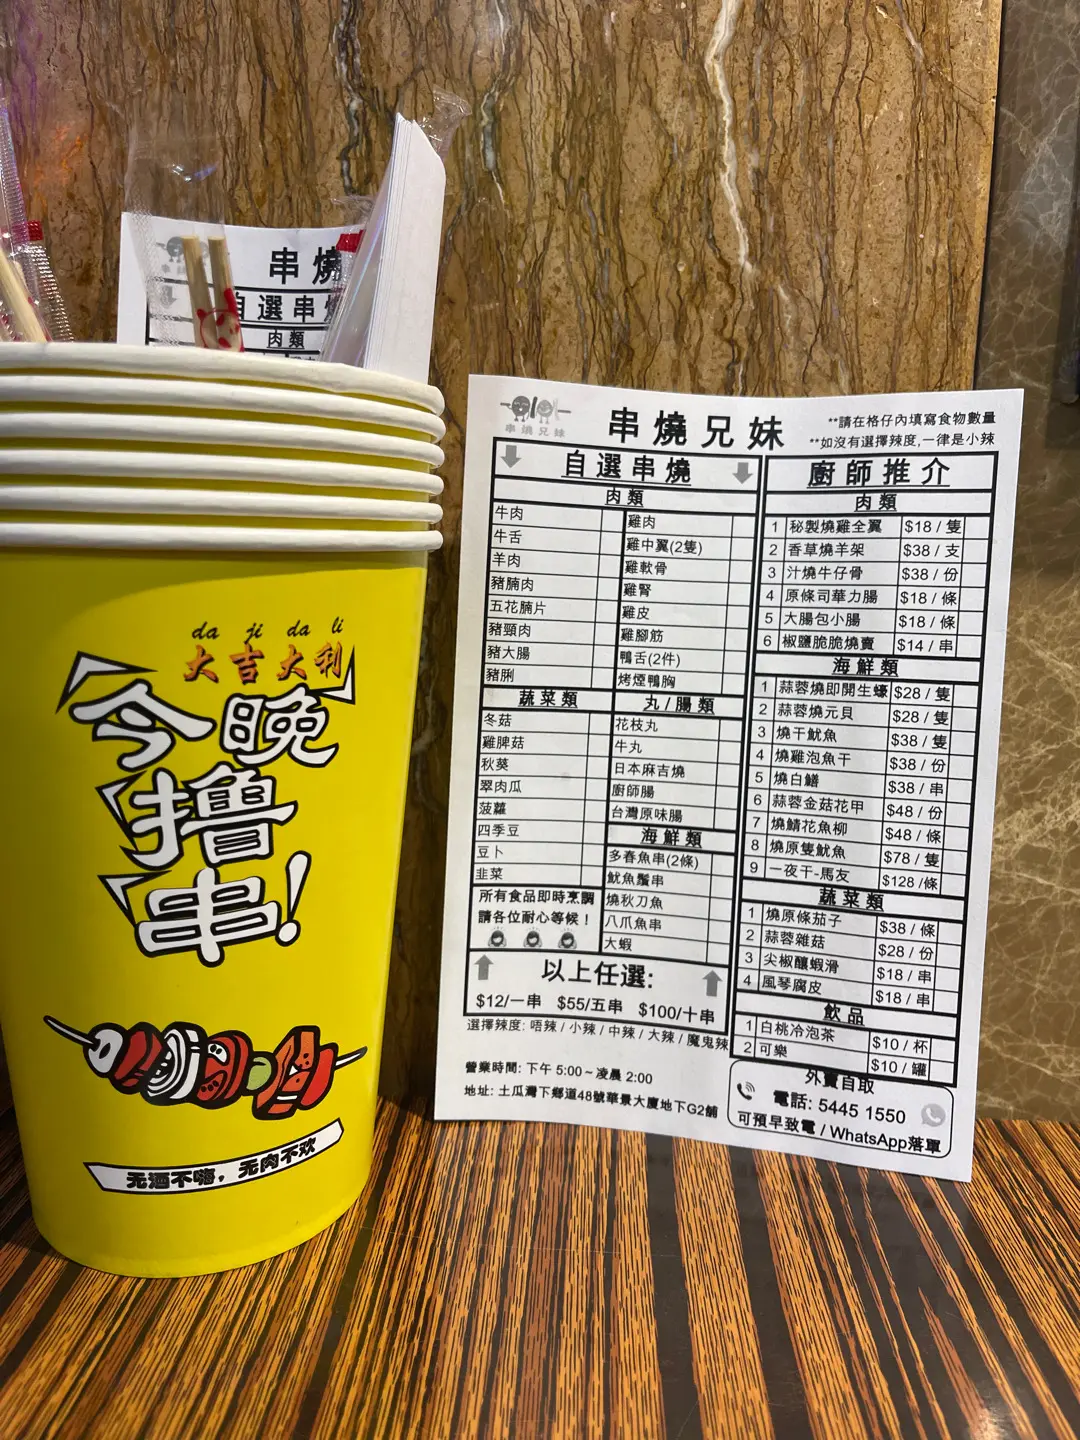 串燒
自選串燒
肉類
da ji da li
大吉大利
今晚
撸
串!
无酒不嗨，无肉不欢
串燒兄妹
串燒兄妹
**請在格仔內填寫食物數量
**如沒有選擇辣度,一律是小辣
自選串燒
肉類
牛肉
牛舌
羊肉
豬腩肉
五花腩片
豬頸肉
豬大腸
豬脷
雞肉
雞中翼(2隻)
雞軟骨
雞腎
雞皮
雞腳筋
鴨舌(2件)
烤煙鴨胸
蔬菜類
冬菇
雞脾菇
秋葵
翠肉瓜
菠蘿
四季豆
豆卜
韭菜
丸/腸類
花枝丸
牛丸
日本麻吉燒
廚師腸
台灣原味腸
海鮮類
多春魚串(2條)
魷魚鬚串
燒秋刀魚
八爪魚串
大蝦
所有食品即時烹調
請各位耐心等候！
以上任選:
$12/一串 $55/五串 $100/十串
選擇辣度: 唔辣 / 小辣 / 中辣 / 大辣 / 魔鬼辣
營業時間: 下午 5:00 ~ 凌晨 2:00
地址: 土瓜灣下鄉道48號華景大廈地下G2舖
廚師推介
肉類
1 秘製燒雞全翼 $18 / 隻
2 香草燒羊架 $38 / 支
3 汁燒牛仔骨 $38 / 份
4 原條司華力腸 $18 / 條
5 大腸包小腸 $18 / 條
6 椒鹽脆脆燒賣 $14 / 串
海鮮類
1 蒜蓉燒即開生蠔 $28 / 隻
2 蒜蓉燒元貝 $28 / 隻
3 燒干魷魚 $38 / 隻
4 燒雞泡魚干 $38 / 份
5 燒白鱔 $38 / 串
6 蒜蓉金菇花甲 $48 / 份
7 燒鯖花魚柳 $48 / 條
8 燒原隻魷魚 $78 / 隻
9 一夜干-馬友 $128 /條
蔬菜類
1 燒原條茄子 $38 / 條
2 蒜蓉雜菇 $28 / 份
3 尖椒釀蝦滑 $18 / 串
4 風琴腐皮 $18 / 串
飲品
1 白桃冷泡茶 $10 / 杯
2 可樂 $10 / 罐
外賣自取
電話: 5445 1550
可預早致電 / WhatsApp落單